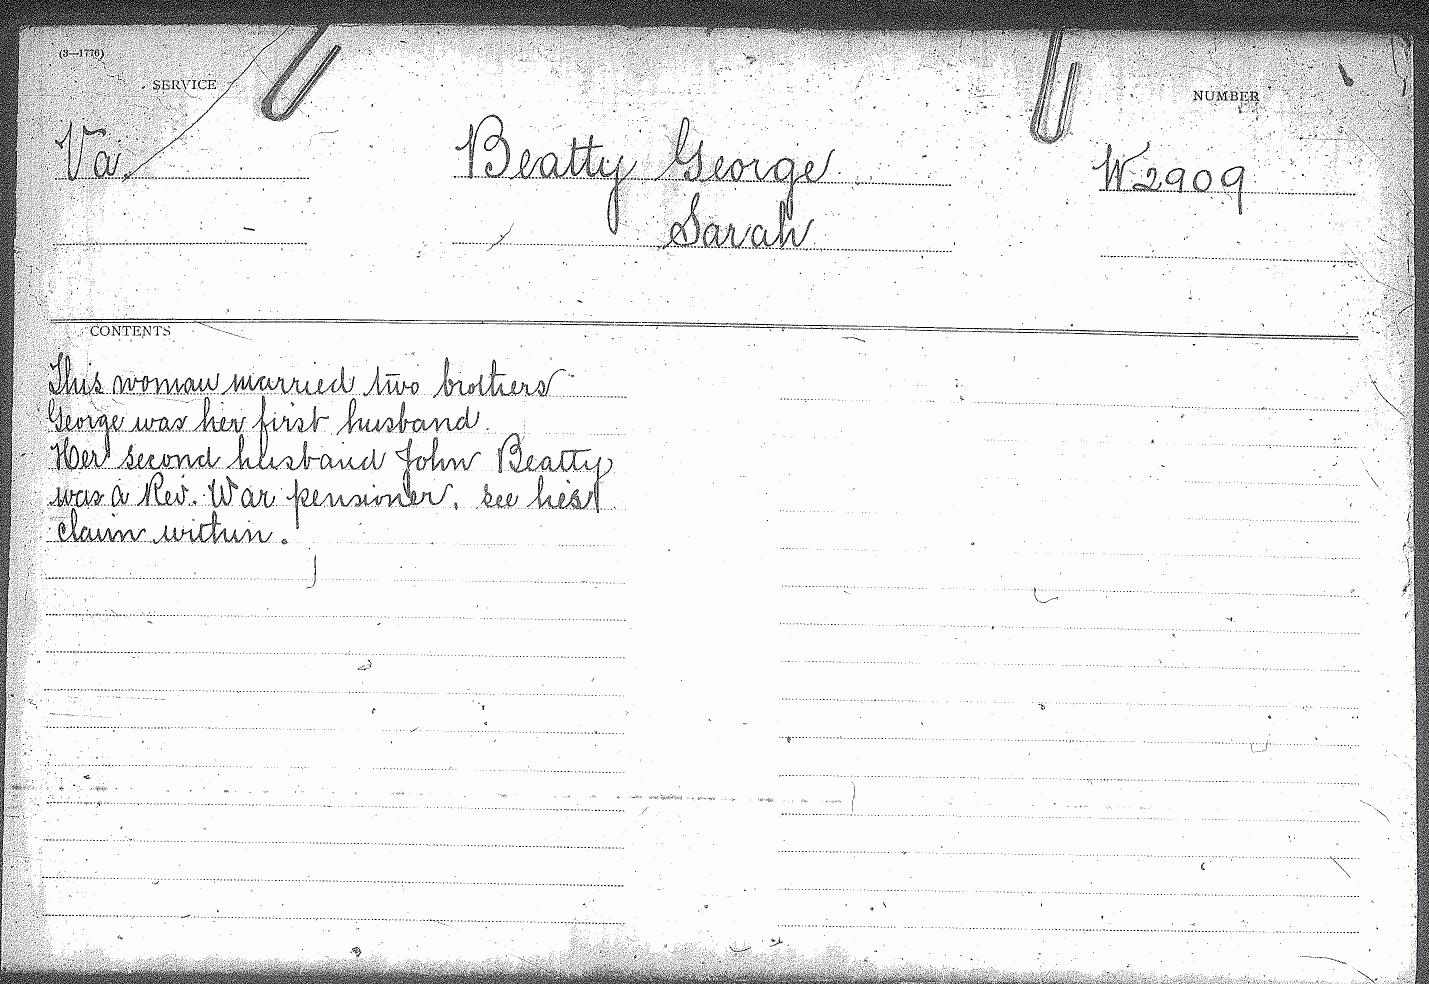 (3—1776)
SERVICE
NUMBER
Va.
Beatty George
W 2909
Sarah
CONTENTS
This woman married two brothers
George was her first husband.
Her second husband John Beatty
was a Rev. War pensioner, see his
claim within.